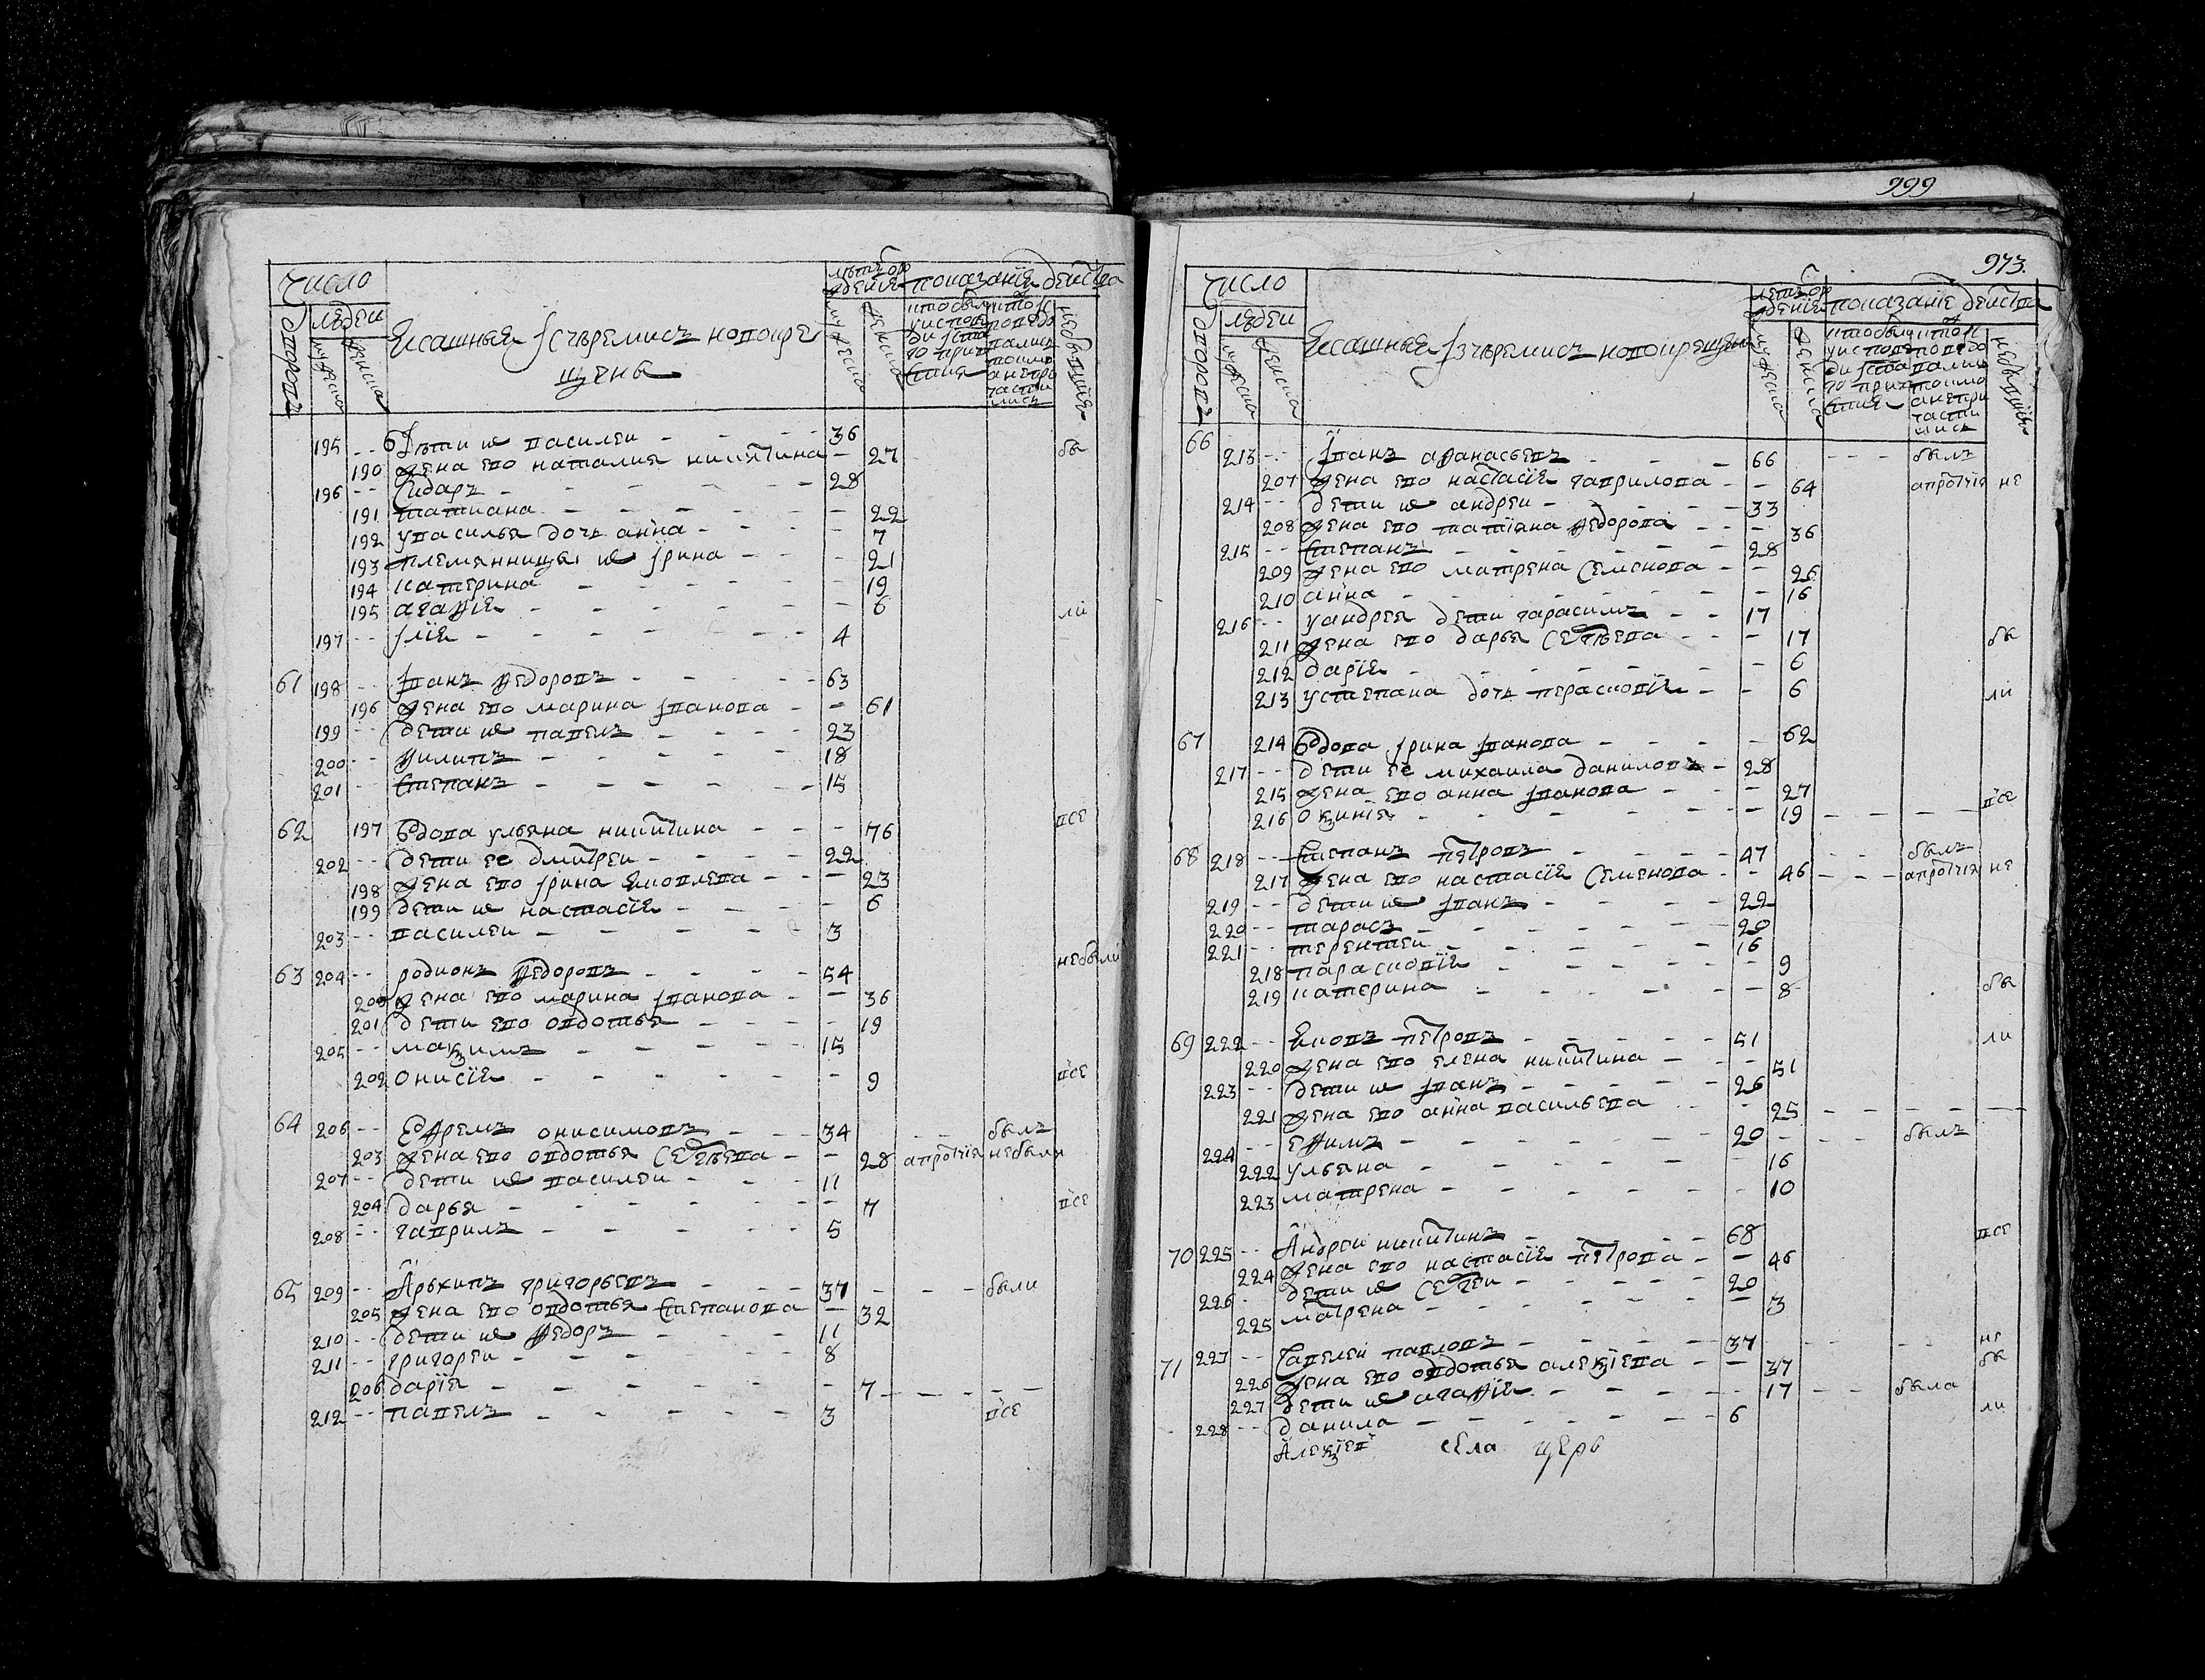 число
людеи
дворовъ
мужеска
женска
Ясашныя ісчеремисъ новокре
щены
летъ от рож
дения
мужеска
женска
показание деиства
небывшия
195 -- Дѣти их василеи - 36
190 жена ево наталия никитина - 27 бы
196 -- Сидаръ - 28
191 татиана - 22
192 у василья дочь анна - 7
193 племянницы их ірина - 21
194 катерина - 19
195 агафия - 6 ли
197 -- ілия - 4
61 198 -- іванъ федоровъ - 63
196 жена ево марина іванова - 61
199 -- дети их павелъ - 23
200 -- филипъ - 18
201 -- степанъ - 15
62 197 вдова ульяна никитина - 76 все
202 -- дети ее дмитреи - 22
198 жена ево ірина яковлева - 23
199 дети их настасия - 6
203 -- василеи - 3
63 204 -- родионъ федоровъ - 54 небыли
200 жена ево марина іванова - 36
201 дети ево овдотья - 19
205 -- макзимъ - 15
202 онисия - 9 все
64 206 -- Ефремъ онисимовъ - 34 - былъ
203 жена ево овдотья Сергѣева - 28 апротчия небыли
207 -- дети их василеи - 11
204 дарья - 7 все
208 -- гаврилъ - 5
65 209 -- Архипъ григорьевъ - 37 - были
205 жена ево овдотья степанова - 32
210 -- дети их федоръ - 11
211 -- григореи - 8
206 дария - 7
212 -- павелъ - 3 все
999
973.
число
людеи
дворовъ
мужеска
женска
Ясашныя ізчеремисъ новокрещены
летъ от рож
дения
мужеска
женска
показание деиства
небывшия
66 213 -- іванъ афанасьевъ - 66 - былъ
207 жена ево настасия гаврилова - 64 апротчия не
214 -- дети их андреи - 33
208 жена ево татияна федорова - 36
215 -- степанъ - 28
209 жена ево матрена Семенова - 26
210 анна - 16
216 -- у андрея дети гарасимъ - 17
211 жена ево дарья Сергѣева - 17 бы
212 дария - 6
213 устепана дочь парасковия - 6 ли
67 214 вдова ірина іванова - 62
217 -- дети ее михаила даниловъ - 28
215 жена ево анна іванова - 27 все
216 окзиния - 19
68 218 -- степанъ петровъ - 47 - былъ
217 жена ево настасия Семенова - 46 - апротчия не
219 -- дети их іванъ - 22
220 -- тарасъ - 20
221 -- терентеи - 16
218 параскопия - 9
219 катерина - 8 бы
69 222 -- Яковъ петровъ - 51 ли
220 жена ево елена никитина - 51
223 -- дети их іванъ - 26
221 жена ево анна васильева - 25
224 -- ефимъ - 20 - былъ
222 ульяна - 16
223 матрена - 10
70 225 -- Андреи никитинъ - 68 все
224 жена ево настасия петрова - 46
226 -- дети их Сергеи - 20
225 матрена - 3
71 227 -- Савелеи павловъ - 37 не
226 жена ево овдотья алекзиева - 37 бы
227 дети их агафия - 17 - была
228 -- данила - 6 ли
Алекзиев села церв